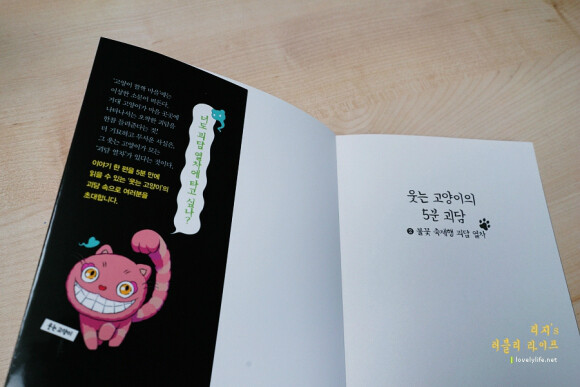 '고양이 깜짝 마을'에는
이상한 소문이 떠돈다.
거대 고양이가 마을 곳곳에
나타나서는 오싹한 괴담을
한참 들려준다는 것!
더 기묘하고 무서운 사실은,
그 웃는 고양이가 모는
'괴담 열차'가 있다는 것이다.
이야기 한 편을 5분 만에
읽을 수 있는 '웃는 고양이'의
괴담 속으로 여러분을
초대합니다.
너도 괴담 열차에 타고 싶니?
웃는 고양이
웃는 고양이의
5분 괴담
2 불꽃 축제행 괴담 열차
러블리 라이프
lovelylife.net